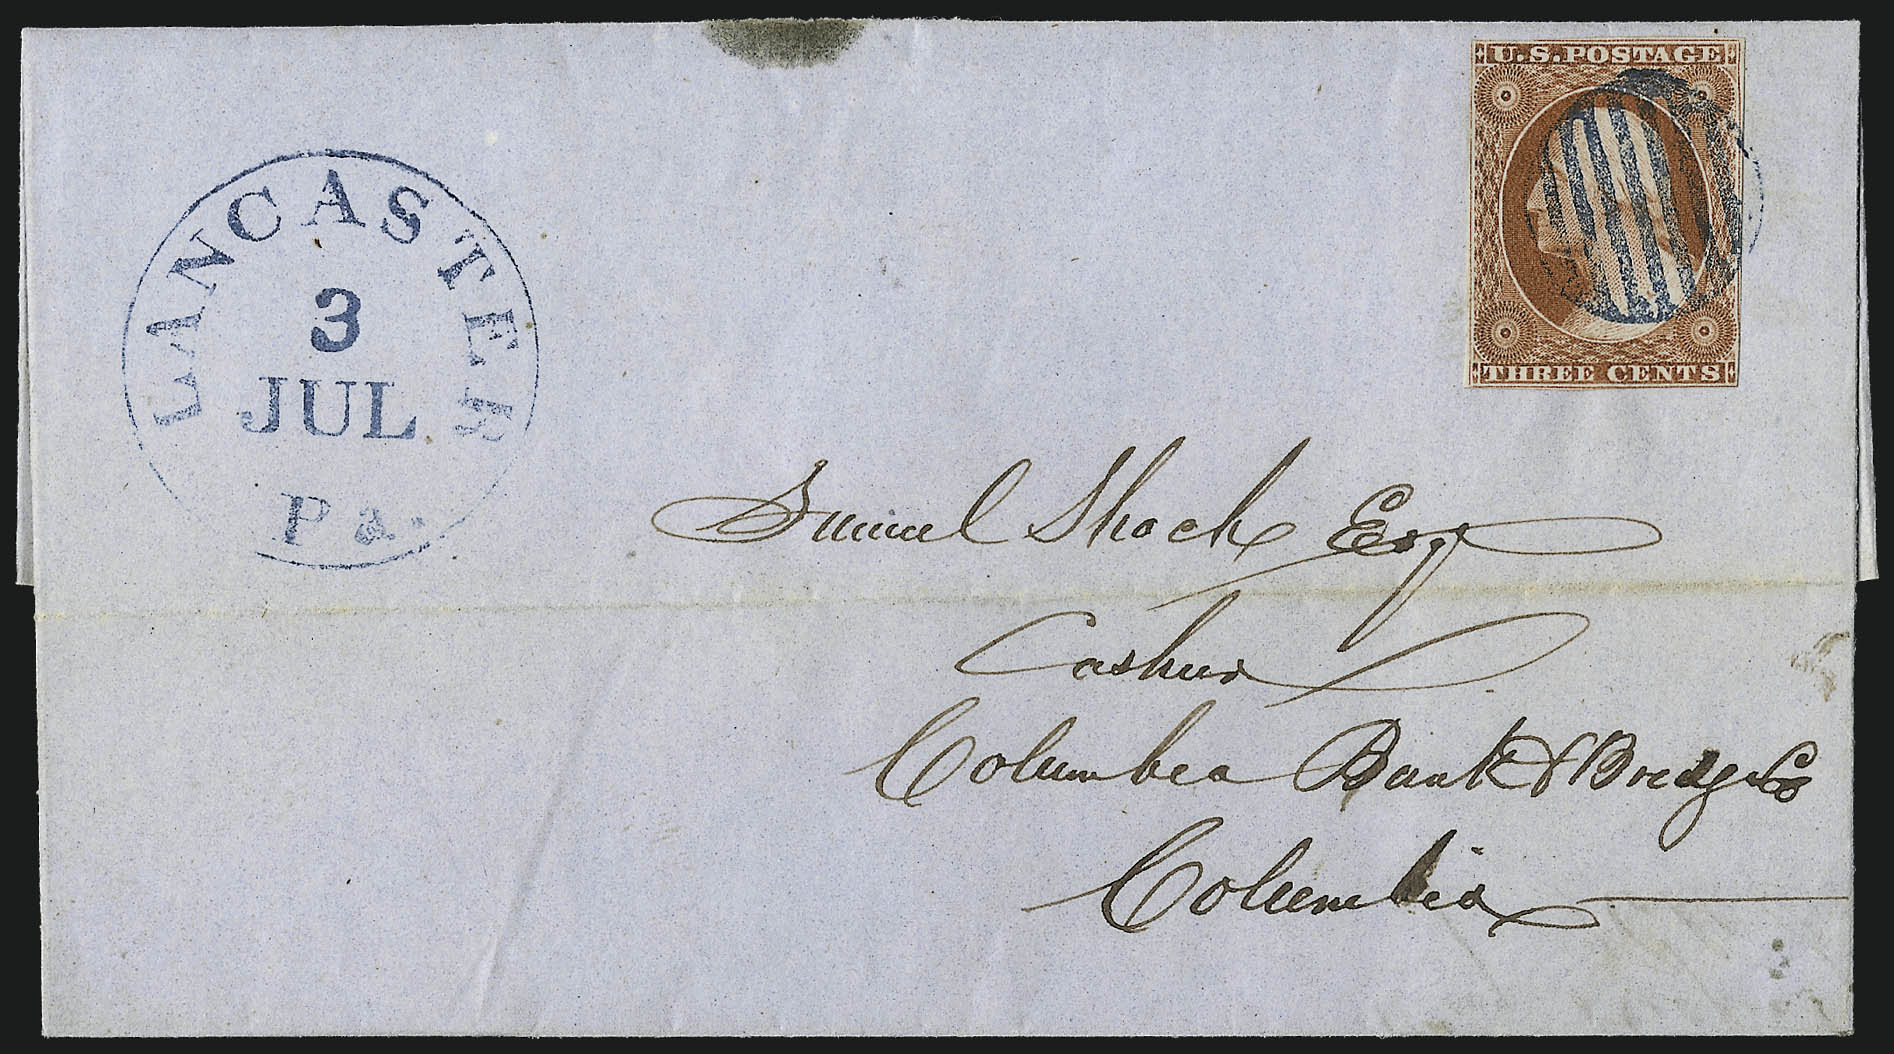 U.S. POSTAGE
THREE CENTS
LANCASTER
3
JUL
Pa.
Samuel Shock Esqr
Cashier
Columbia Bank & Bridge Co
Columbia